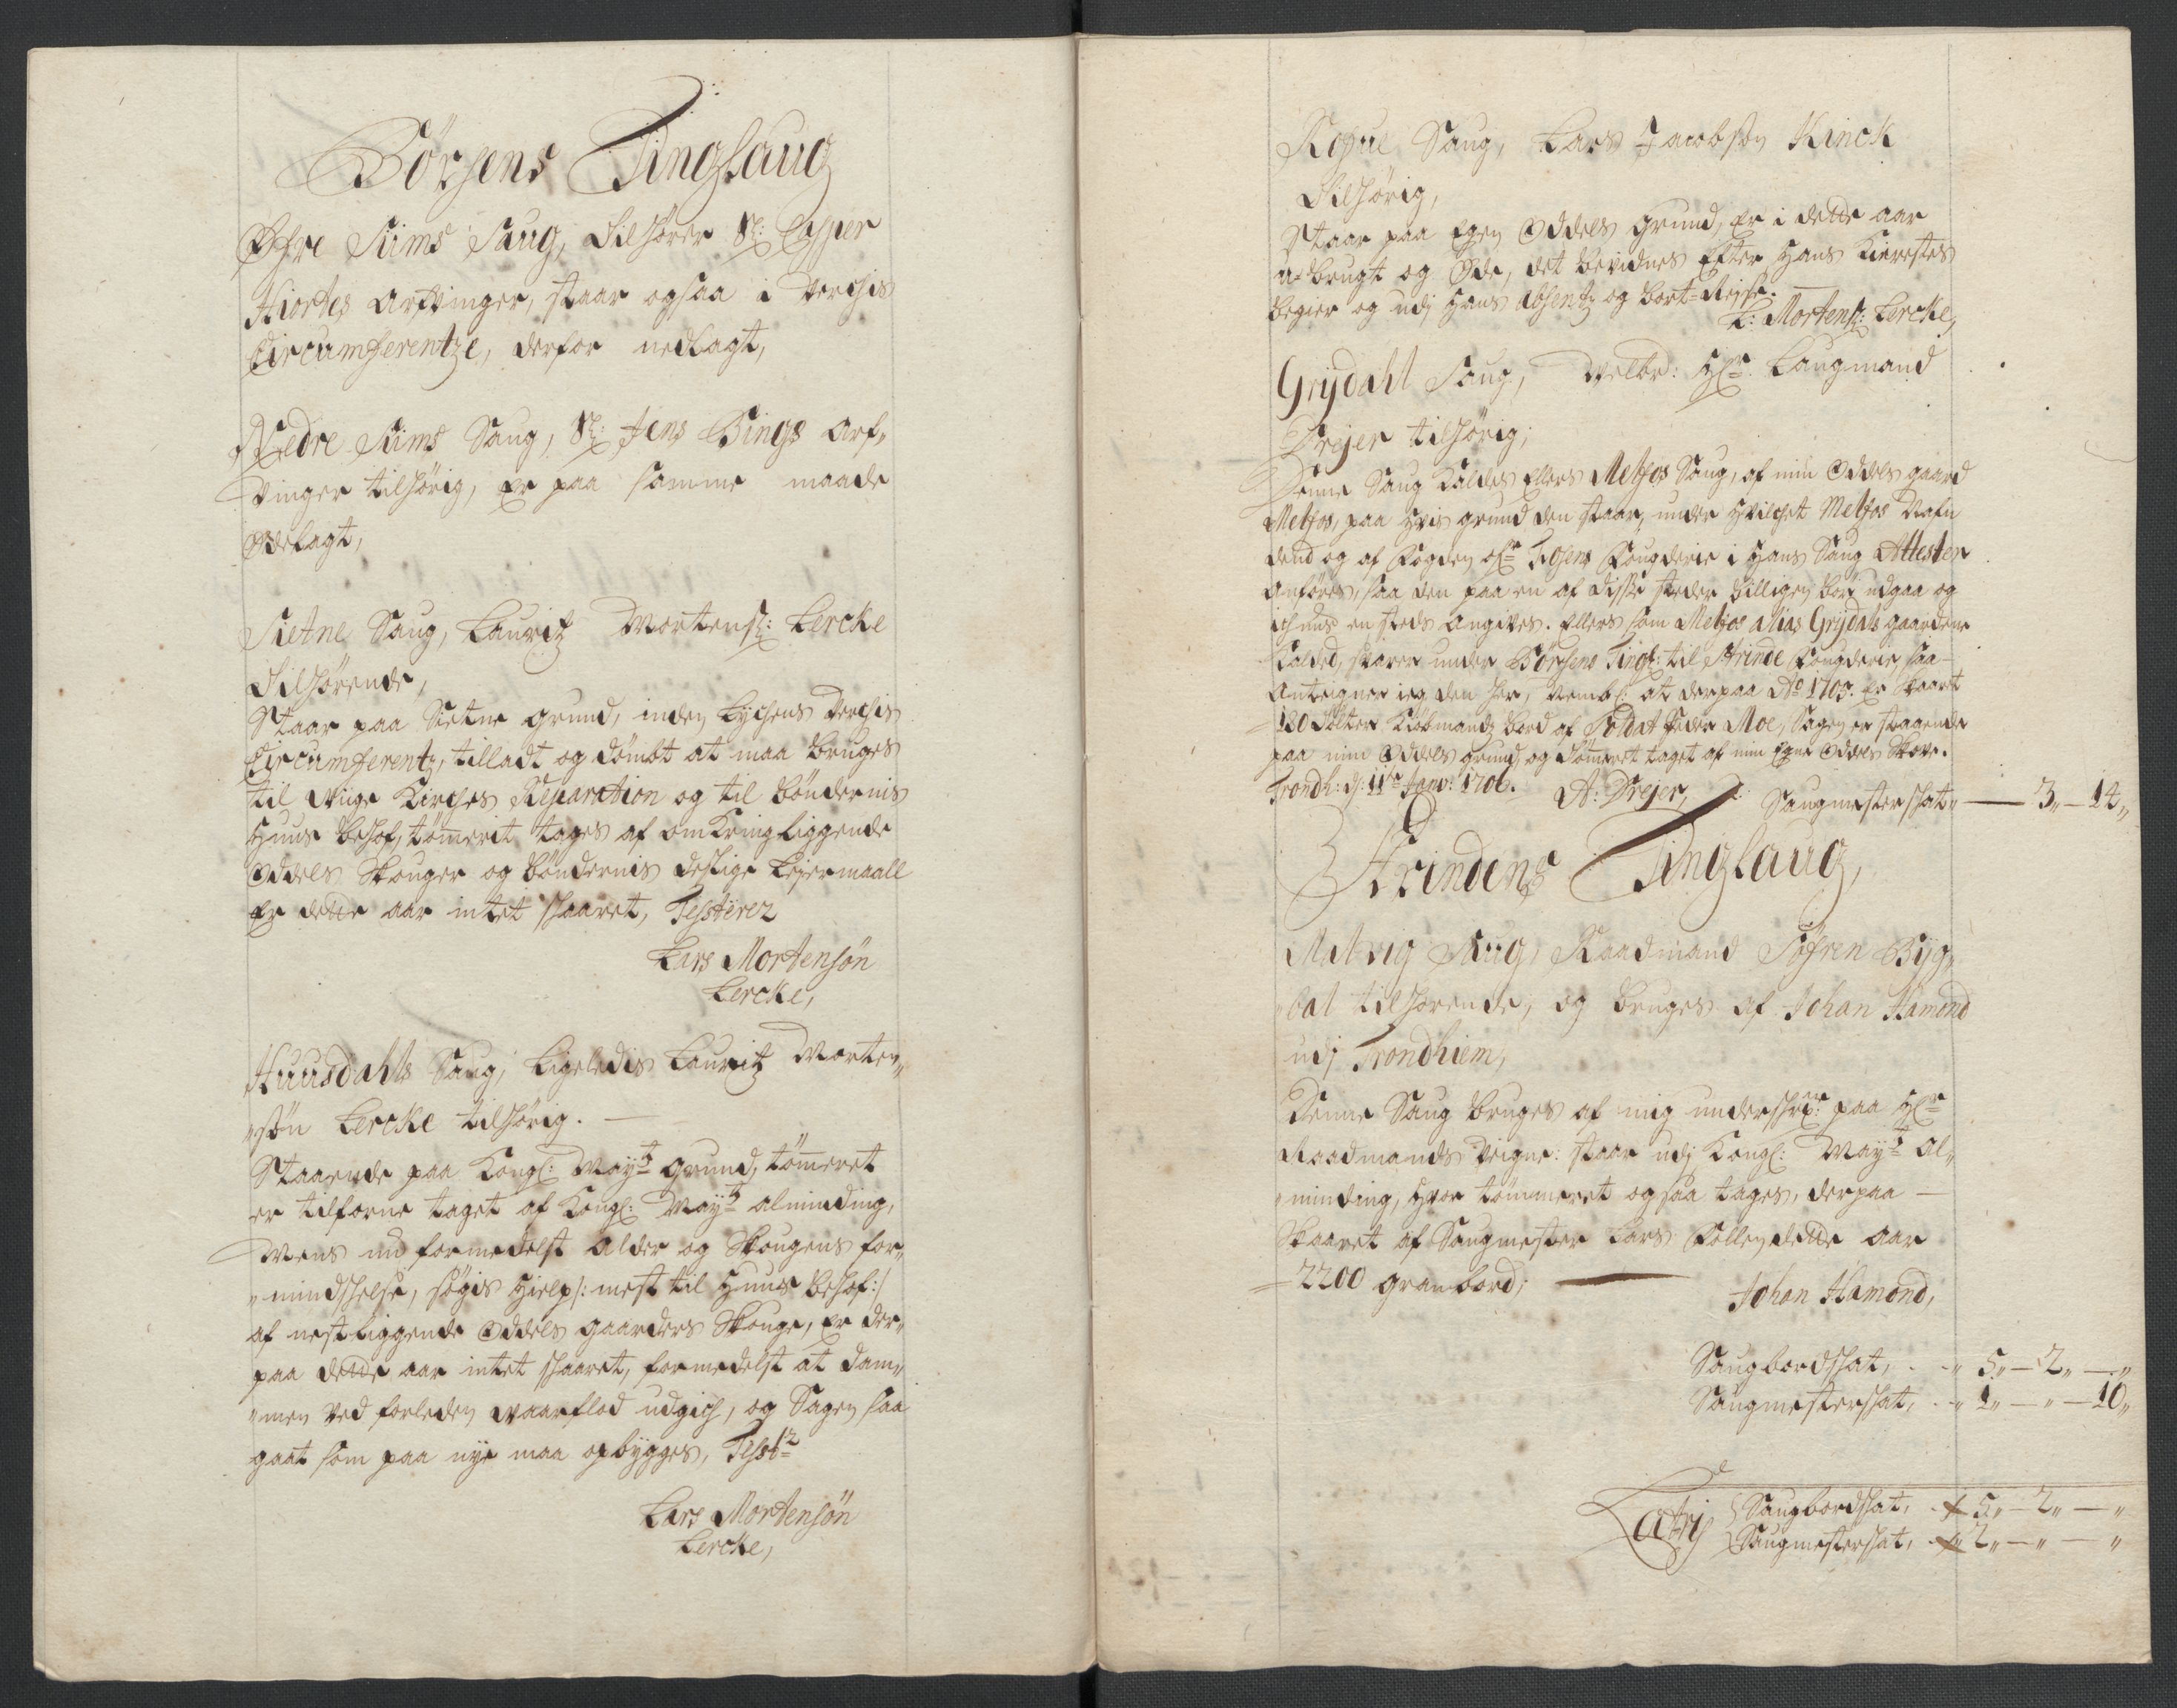 Börsens Tinglaug
Øfre Sims Saug, Tilhører Sl: Casper
Hiortes Arfvinger, staar ogsaa i Verchis
Circumferentze, derfor nedlagt,
Nedre Sims Saug, Sl: Jens Bings Arf„
vinger tilhørig, er paa samme maade
Ødelagt,
Sietne Saug, Lauritz Mortens: Lercke
Tilhørende,
Staar paa Sietne grund, inden Lychens Verchis
Circumferentz, tilladt og dömbt at maa bruges
til Wiige Kirches Reparation og til bøndernis
Huus behof, tömerit tages af omkring liggende
Oddels Skouger og bøndernis deslige Leiermaall
Er dette aar intet skaaret, Testerer
Lars Mortensön
Lercke,
Huusdahls Saug, Ligeledis Lauritz Morten„
„søn Lercke tilhørig. —
Staaende paa Kongl: May:t grund, tömeret
er tilforne taget af Kongl: May:t alminding,
Mens nu formedelst Alder og Skougens for„
„mindskelse, søgis Hielp /: mest til Huus behof :/
af nestliggende Oddels gaarders Skouge, er der„
paa dette aar intet skaaret, formedelst at dam„
„men ved forleden Vaarflod udgich, og Sagen saa
gaat som paa nye maa opbygges, Test:r
Lars Mortensön
Lercke,
Saug, Lars Jacobsøn Kinck
Tilhørig,
Staar paa Egen Oddels grund, Er i dette aar
u-brugt og Øde, det bevidnes Efter Hans
begier og udj Hans Absentz og bort-Rejse. —
L: Mortens: Lercke,
Grijdahl Saug, Velbr: Hr: Laugmand
Drejer tilhörig,
Denne Saug Kaldes Ellers Melfos Saug, af min Oddels gaard
Melfos, paa Hvis grund den staar, under Hvilchet Melfos Nafn
dend og af Fogden ofr: Fosens Fougderie i Hans Saug Attester
anføres, saa den paa en af disse steder billigen bør udgaa og
ichuns en steds Angives. Ellers som Melfos alias Grijdals gaardene
Kalded, svarer under Börsens Tingl: til Strinde Fougderie, saa
Anteigner ieg den her, Nembl: at derpaa Ao 1705. er skaaret
180 Tolter Kiöbmandz bord af Soldat Peder Moe, Sagen er staaende
paa min Oddels grund og tömeret taget af min Egne Oddels Skove.
Trondh: d: 11te Janv: 1706. A: Drejer, Saugmesterskat„ — 3„ — 14„
Strindens Tinglaug,
Malvig Saug, Raadmand Søfren Byg„
„bal tilhörende, og bruges af Johan Hamond
udj Trondhiem,
Denne Saug bruges af mig underskref:ne paa Hr:
Raadmands Veigne: staar udj Kongl: May:t Al„
„minding, Hvor tömmeret ogsaa tages, derpaa —
Skaaret af Saugmester Lars Follen dette Aar
2200 gran bord;
Johan Hamond,
Saugbordskat, . „ 5„ — 2„ — „
Saugmesterskat, . „ 1„ — „ — 10„
Latris Saugbordskat, 5„ — 2„ — „
Saugmesterskat, 2„ — „ — „